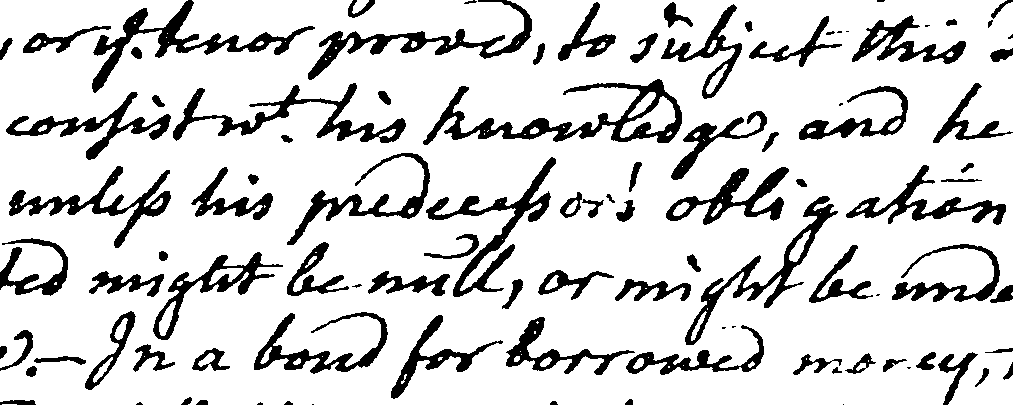 , or yᵉ. tenor proved, to subject this
consist wᵗ. his knowledge, and he
unless his predecessor's obligation
ted might be null, or might be unde
.— In a bond for borrowed money,